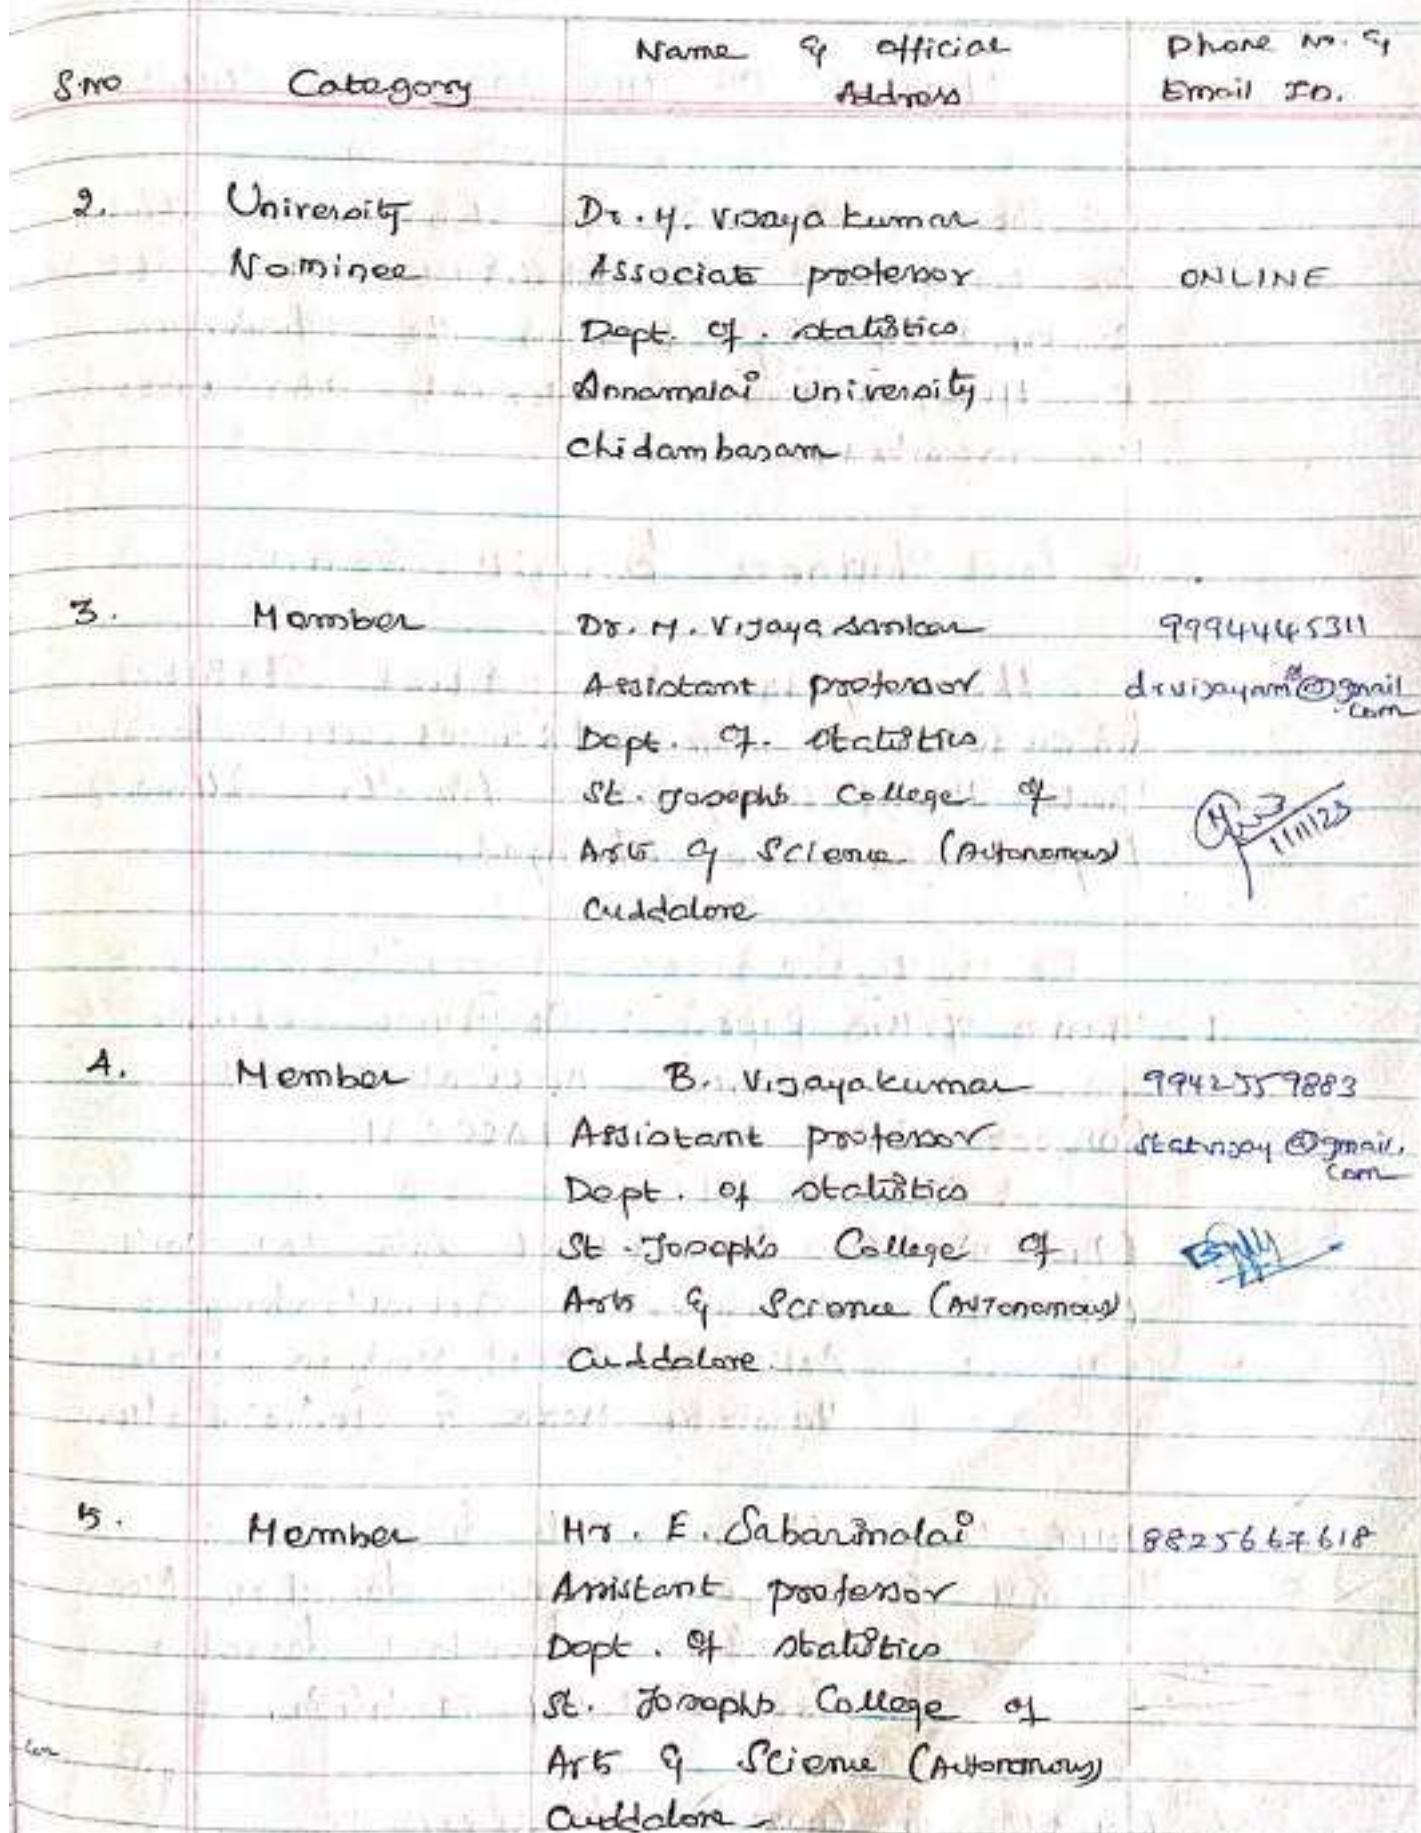 S.no Category Name & official Address Phone No. & Email ID.
2. University Nominee
Dr. M. Vijaya kumar
Associate professor
Dept. of. statistics
Annamalai University
Chidambaram
ONLINE
3. Member
Dr. M. Vijaya sankar
Assistant professor
Dept. of. statistics
St. Josephs College of
Arts & Science (Autonomous)
Cuddalore
9994445311
@gmail.com
1/11/23
4. Member
B. Vijayakumar
Assistant professor
Dept. of statistics
St. Joseph's College of
Arts & Science (Autonomous)
Cuddalore.
9942559883
statvijay@gmail.com
5. Member
Mr. E. Sabarimalai
Assistant professor
Dept. of statistics
St. Josephs College of
Arts & Science (Autonomous)
Cuddalore
8825667618